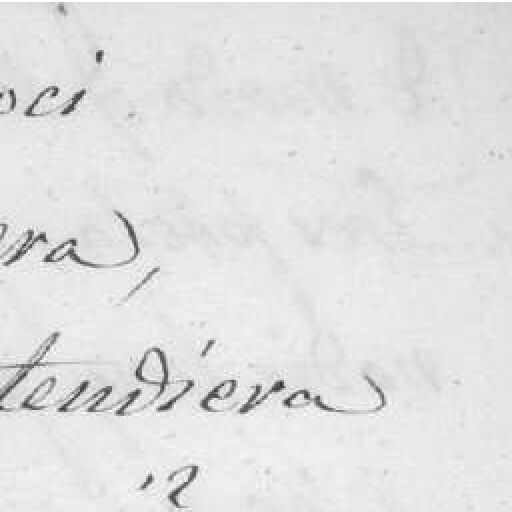 oci
ra,
tendiera